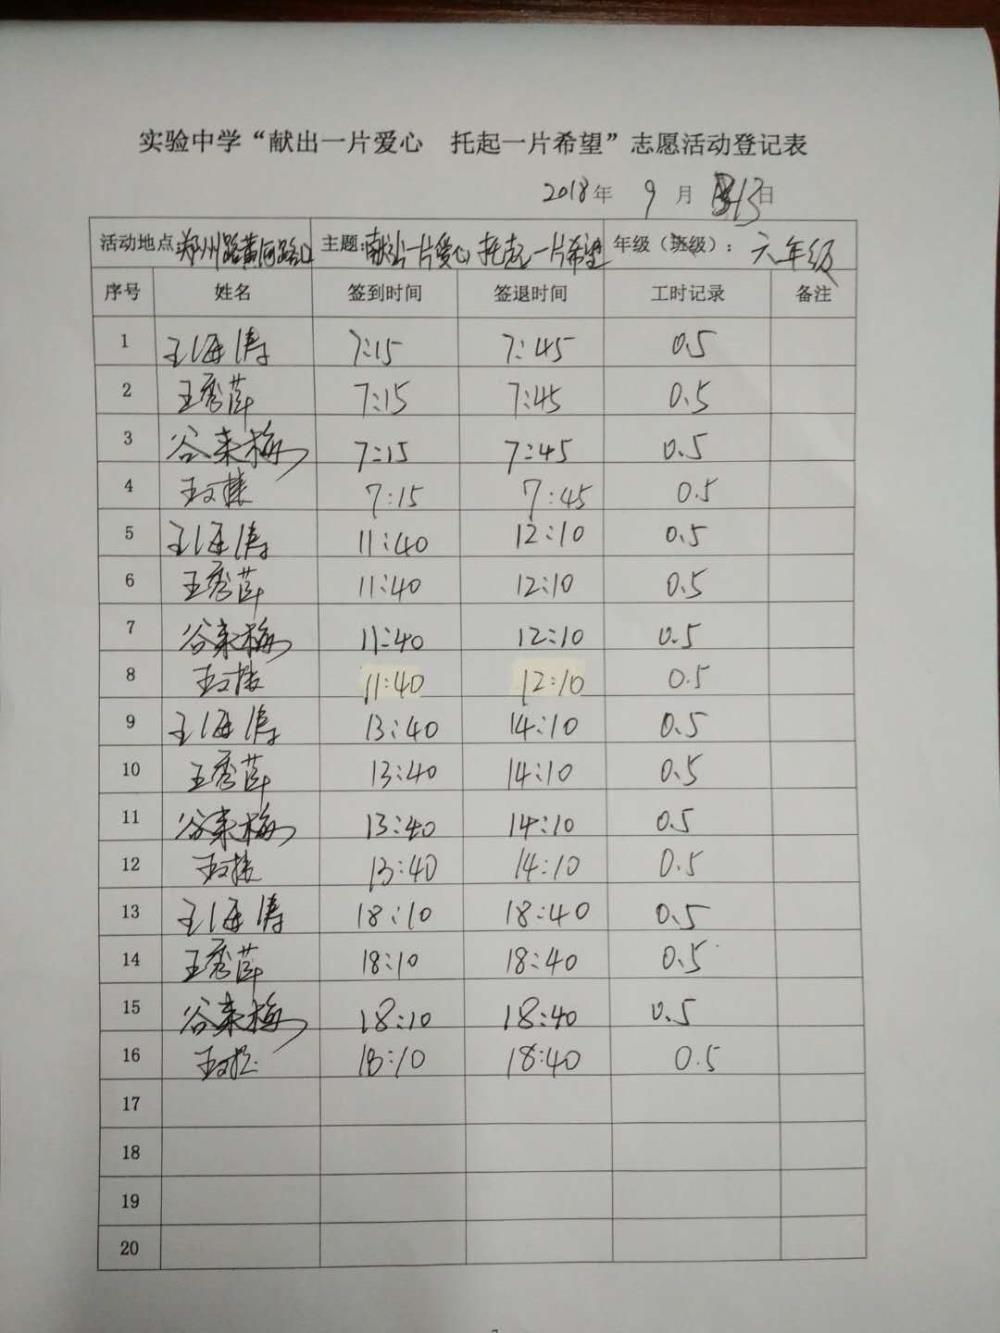 实验中学“献出一片爱心 托起一片希望”志愿活动登记表
2018年 9月 13日
活动地点 郑州路黄河路口 主题：献出一片爱心 托起一片希望 年级（班级）：六年级
序号 姓名 签到时间 签退时间 工时记录 备注
1 王海涛 7:15 7:45 0.5
2 王秀萍 7:15 7:45 0.5
3 谷来梅 7:15 7:45 0.5
4 7:15 7:45 0.5
5 王海涛 11:40 12:10 0.5
6 王秀萍 11:40 12:10 0.5
7 谷来梅 11:40 12:10 0.5
8 11:40 12:10 0.5
9 王海涛 13:40 14:10 0.5
10 王秀萍 13:40 14:10 0.5
11 谷来梅 13:40 14:10 0.5
12 13:40 14:10 0.5
13 王海涛 18:10 18:40 0.5
14 王秀萍 18:10 18:40 0.5
15 谷来梅 18:10 18:40 0.5
16 18:10 18:40 0.5
17
18
19
20